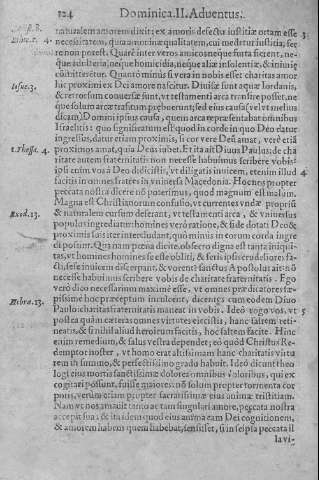 124 Dominica. II. Aduentus.
naturalem amorem dixit: ex amoris defectu iustitiæ ortam esse
necessitatem, quia amor inæqualitatem, cui medetur iustitia, fer
re non potest. Quare inter veros amicos neque furta fierent, ne-
que adulteria, neque homicidia, neque aliæ insolentiæ, & iniuriæ
committerẽtur. Quanto minus si vera in nobis esset charitas amor
Iosue.3. hic proximi ex Dei amore nascitur. Diuisæ sunt aquæ Iordanis,
& retrorsum conuersæ sunt, vt testamenti arca transire posset, ne
que solum arcæ transitum præbuerunt, sed eius causa (vel vt melius
dicam) Domini ipsius causa, quem arca repræsentabat omnibus
Israelitis: quo significatum est quod in corde in quo Deo datur
ingressus, datur etiam proximis, si cor vere Deũ amat, verè etiã
1.Thess. 4. proximos amat, quia Deus iubet. Et ita ait Diuus Paulus: de cha
ritate autem fraternitatis non necesse habuimus scribere vobis:
ipsi enim vos à Deo didicistis, vt diligatis inuicem, etenim illud 4
facitis in omnes fratres in vniuersa Macedonia. Hoc nos propter
peccata nostra dicere nõ poterimus, quod magnum est malum.
Magna est Christianorum confusio, vt currentes vndæ proprium
Exod.13. & naturalem cursum deserant, vt testamenti arca, & vniuersus
populus ingrediatur: homines vero ratione, & fide dotati Deo &
proximo suis iter intercludant, quò minus in eorum corda ingre
di possint. Qua nam pœna dicite obsecro digna est tanta iniqui-
tas, vt homines homines se esse obliti, & feris ipsi seruidiores fa-
cti, sese inuicem discerpant, & vorent? sanctus Apostolus ait: nõ
necesse habui nunc scribere vobis de charitate fraternitatis. Ego
verò dico necessarium maxime esse, vt omnes prædicatores sæ-
Hebræ.13. pissime hoc præceptum inculcent, dicentes cum eodem Diuo
Paulo: charitas fraternitatis maneat in vobis. Ideò rogo vos, vt 5
postea quàm cæteras omnes virtutes eiicistis, hanc saltem reti-
neatis, & si nihil aliud heroicum facitis, hoc saltem facite. Hinc
enim remedium, & salus vestra dependet; eò quòd Christus Re-
demptor noster, vt homo erat altissimam hanc charitatis virtu
tem in summo, & perfectissimo gradu habuit. Ideò dicunt theo
logi eius mortis sanctissimæ dolores omnibus doloribus, qui ex
cogitari possunt, fuisse maiores: nõ solum propter tormenta cor
poris, verùm etiam propter sacratissimæ eius animæ tristitiam.
Nam vt nos amauit tanto ac tam singulari amore, peccata nostra
accepit sua: & ita ideo quod eius anima eam Dei cognitionem,
& amorem habens quem habebat, sensisset, si in seipsa peccata il
la vi-